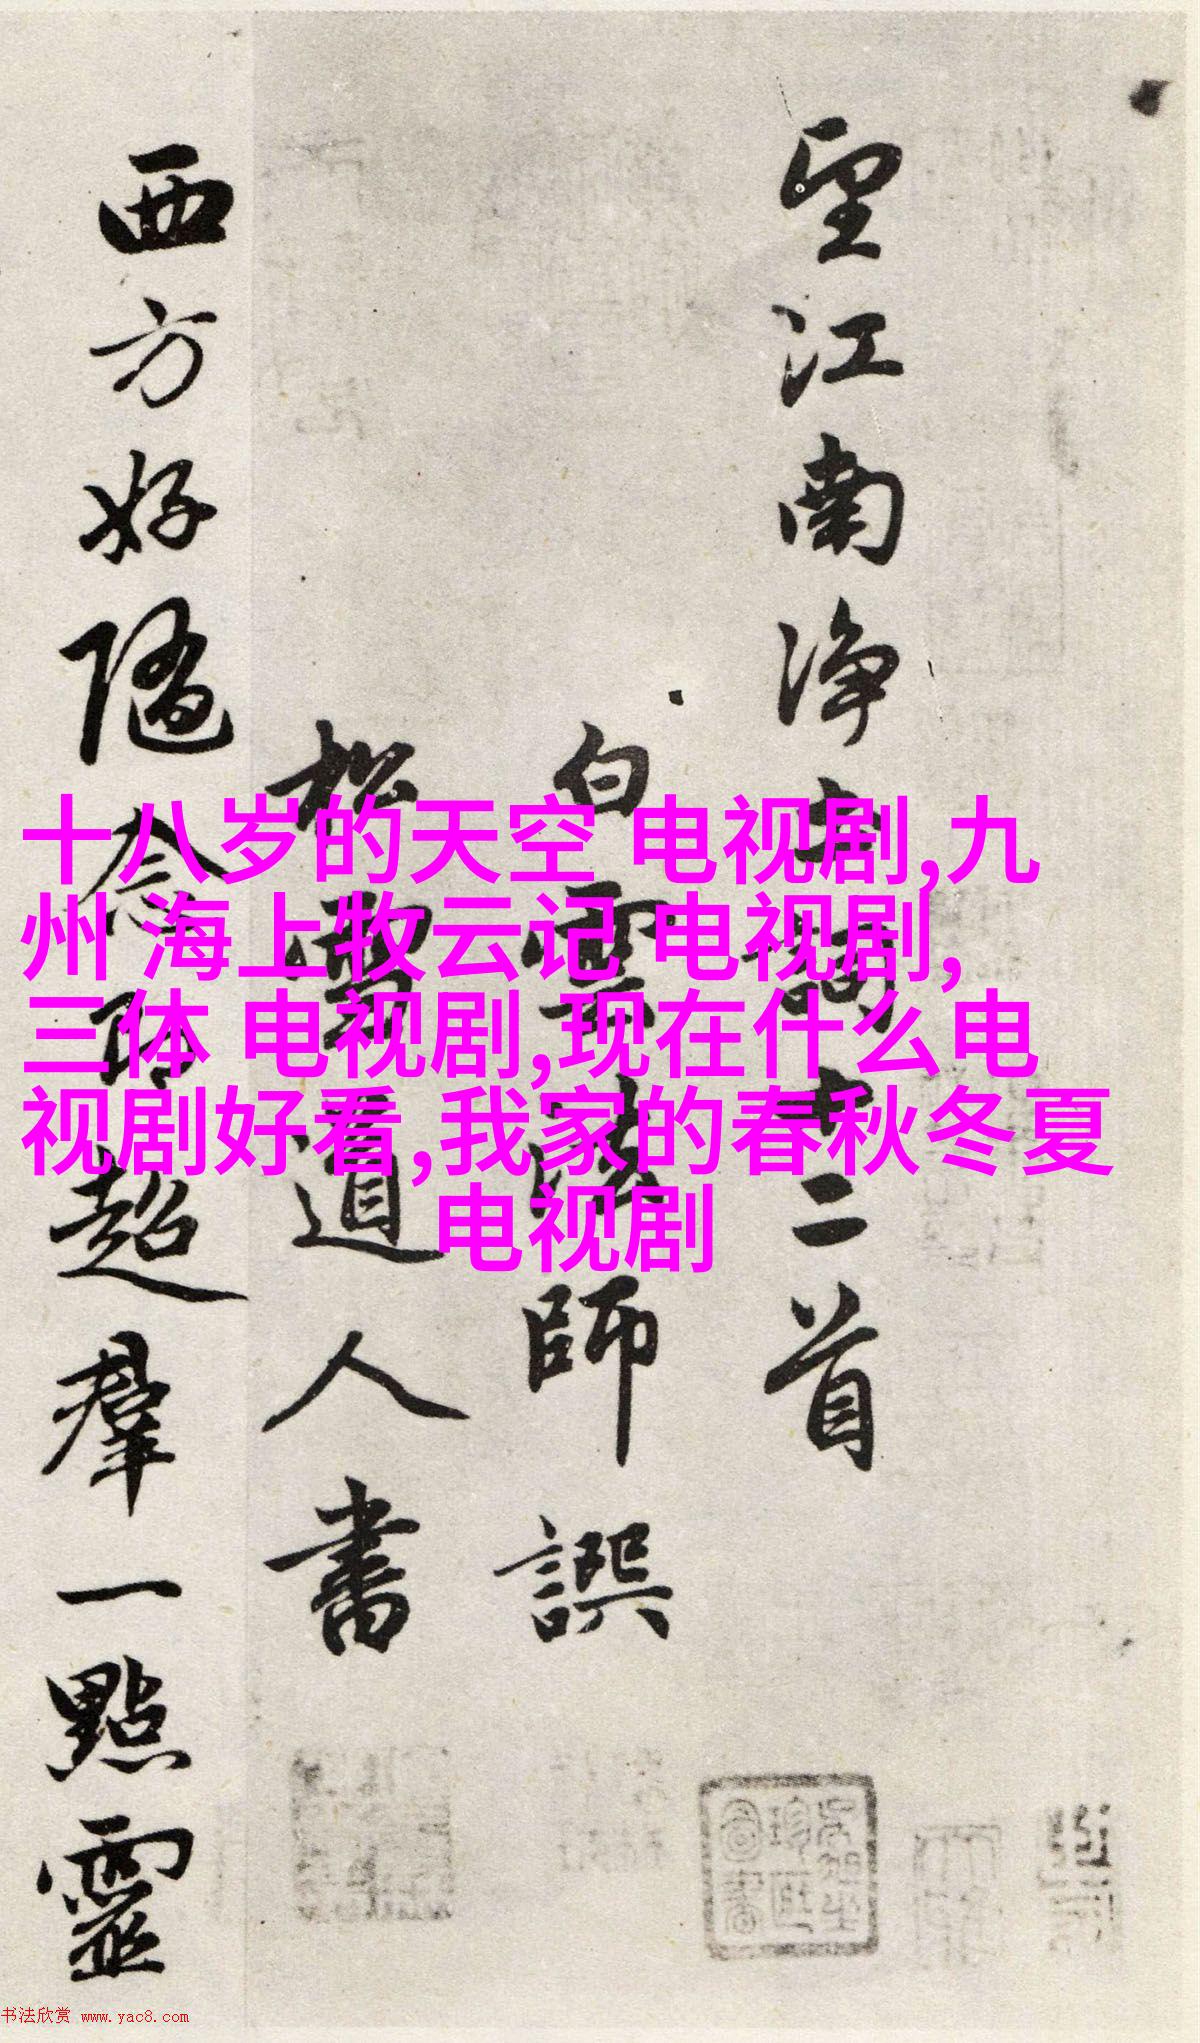 望江南净土詞十二首
白雲法師譔
松雪道人書
西方好隨念即超羣一點靈
十八岁的天空 电视剧,九
州 海上牧云记 电视剧,
三体 电视剧,现在什么电
视剧好看,我家的春秋冬夏
电视剧
书法欣赏 www.yac8.com